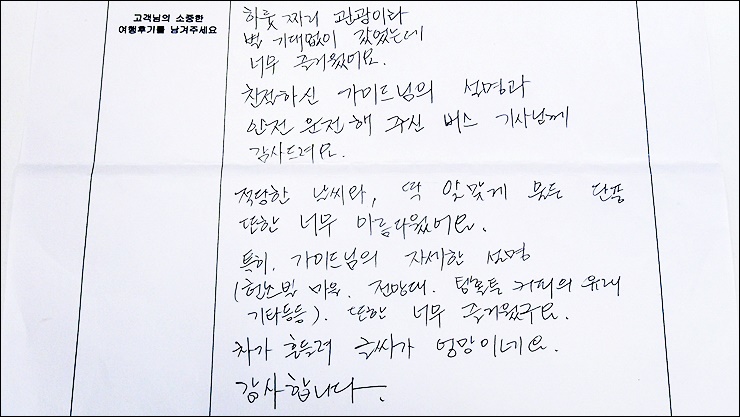 고객님의 소중한
여행후기를 남겨주세요
하룻 짜리 관광이라
별 기대없이 갔었는데
너무 즐거웠어요.
친절하신 가이드님의 설명과
안전 운전해 주신 버스 기사님께
감사드려요.
적당한 날씨와, 딱 알맞게 물든 단풍
또한 너무 아름다웠어요.
특히, 가이드님의 자세한 설명
(헌소밥 마을. 전망대. 텀블톨 커피의 유래
기타등등). 또한 너무 즐거웠구요.
차가 흔들려 글씨가 엉망이네요.
감사합니다.